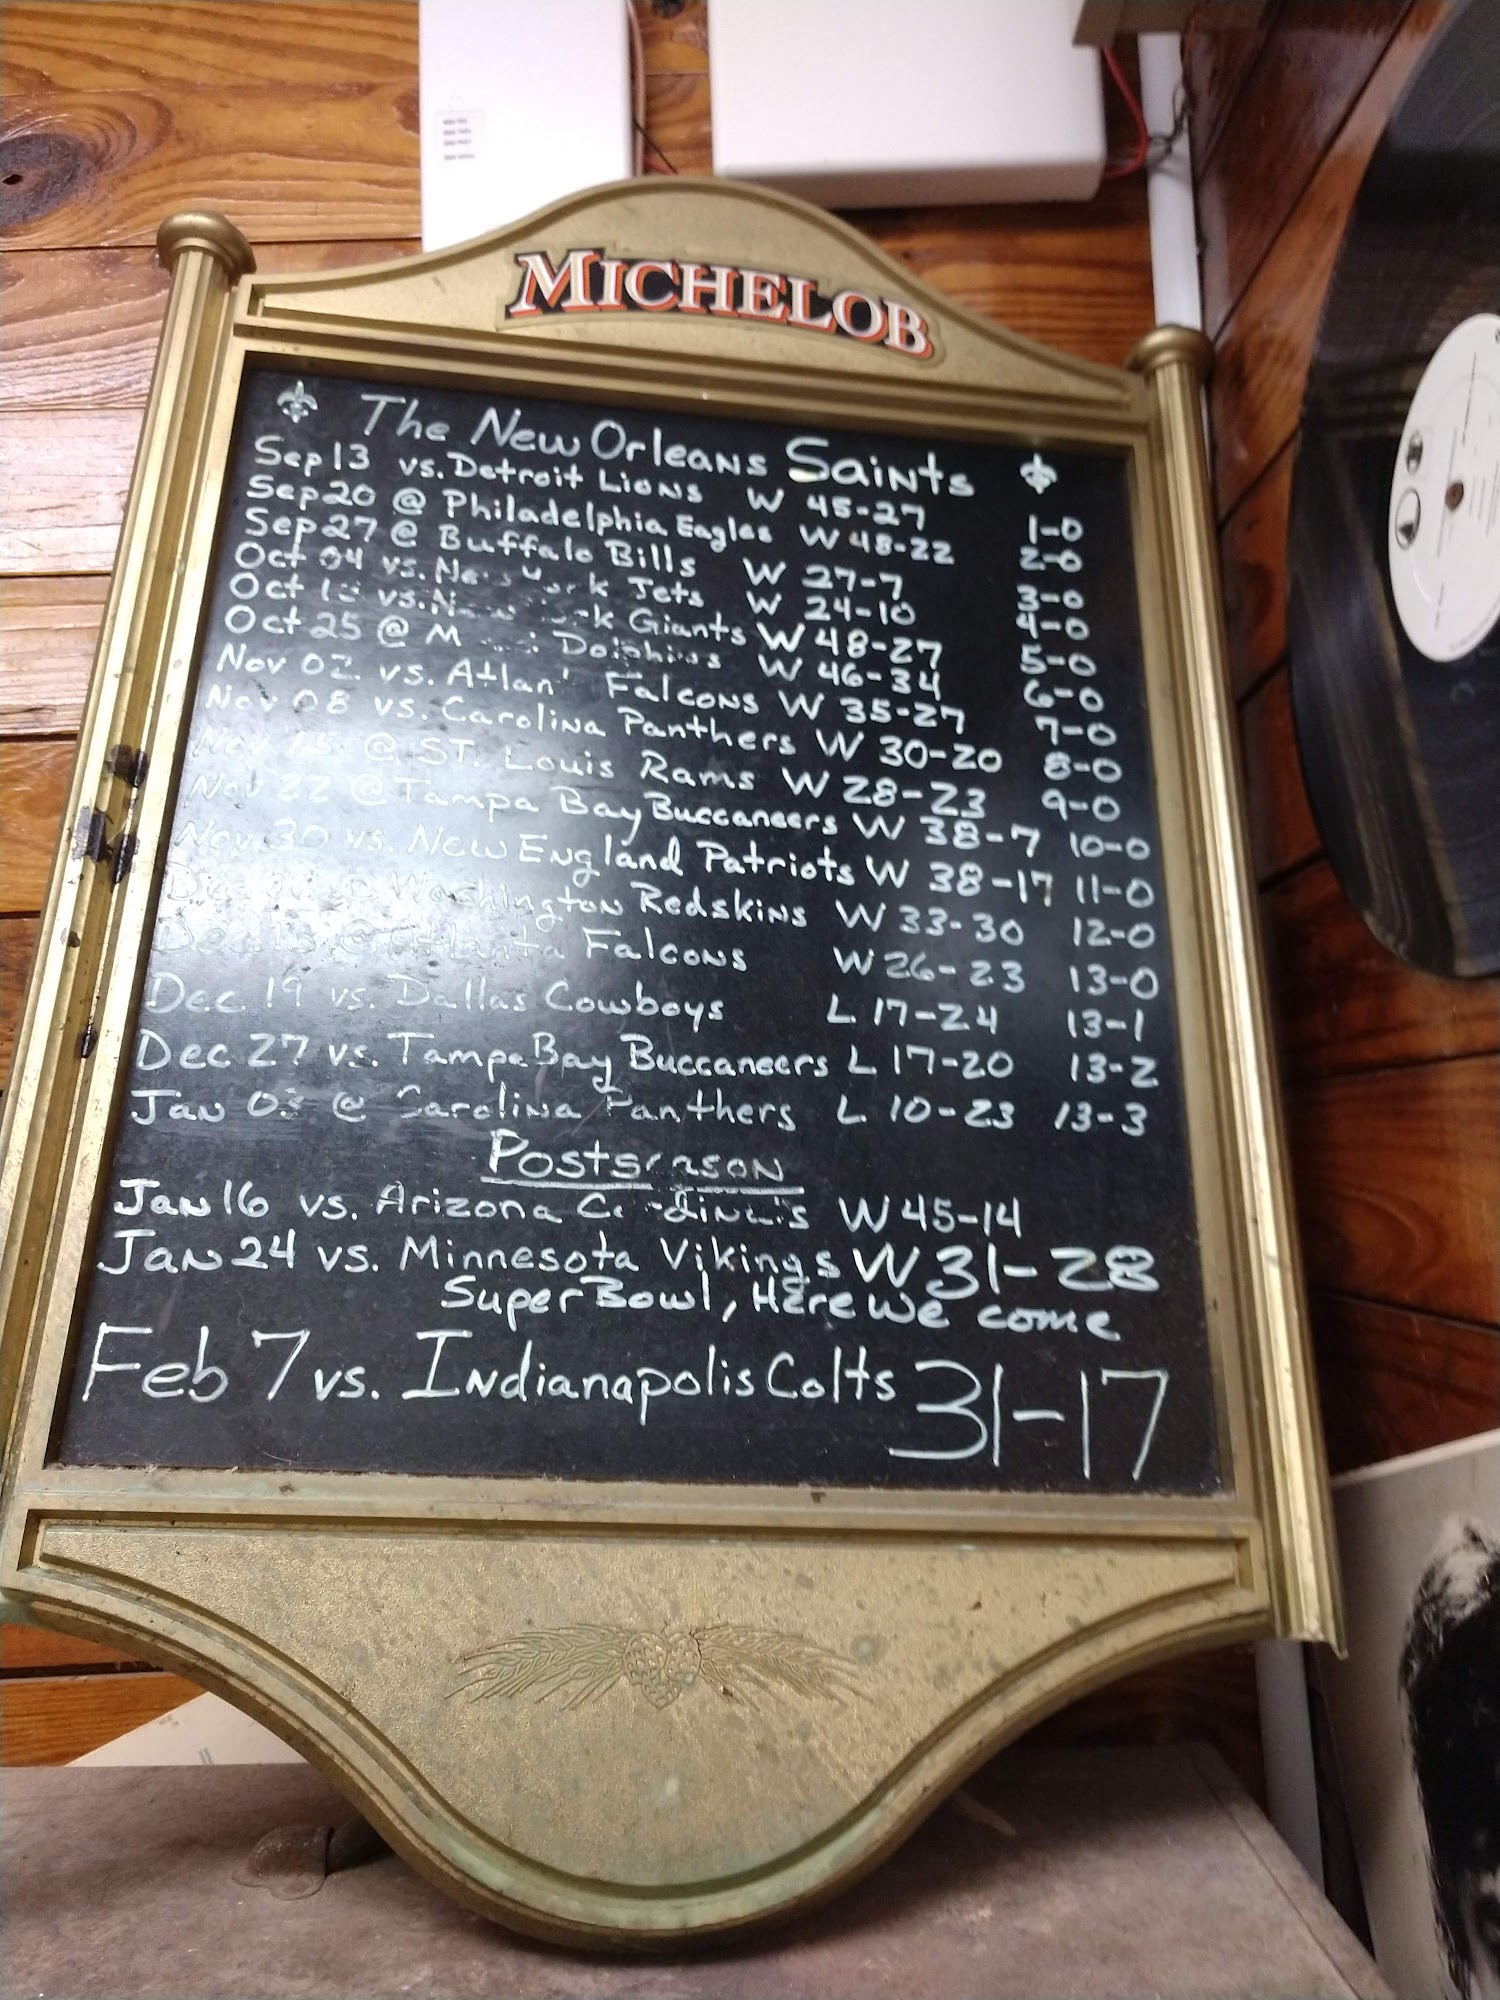 MICHELOB
The New Orleans Saints
Sep 13 vs. Detroit Lions W 45-27 1-0
Sep 20 @ Philadelphia Eagles W 48-22 2-0
Sep 27 @ Buffalo Bills W 27-7 3-0
Oct 04 vs. Jets W 24-10 4-0
Oct vs. Giants W 48-27 5-0
Oct 25 @ Dolphins W 46-34 6-0
Nov 02 vs. Falcons W 35-27 7-0
Nov 08 vs. Carolina Panthers W 30-20 8-0
Nov 15 @ ST. Louis Rams W 28-23 9-0
Nov 22 @ Tampa Bay Buccaneers W 38-7 10-0
Nov 30 vs. New England Patriots W 38-17 11-0
Washington Redskins W 33-30 12-0
Dec 13 @ Atlanta Falcons W 26-23 13-0
Dec 19 vs. Dallas Cowboys L 17-24 13-1
Dec 27 vs. Tampa Bay Buccaneers L 17-20 13-2
Jan 03 @ Carolina Panthers L 10-23 13-3
Postseason
Jan 16 vs. Arizona W 45-14
Jan 24 vs. Minnesota Vikings W 31-28
Super Bowl, Here we come
Feb 7 vs. Indianapolis Colts 31-17